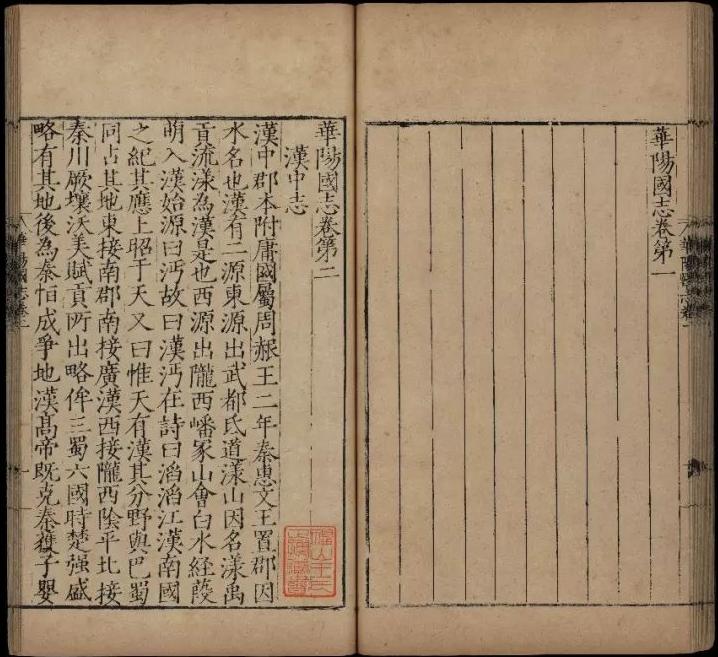 華陽國志卷第一
華陽國志卷第二
漢中志
漢中郡本附庸國屬周赧王二年秦惠文王置郡因
水名也漢有二源東源出武都氐道漾山因名漾禹
貢流漾為漢是也西源出隴西嶓冢山會白水經葭
萌入漢始源曰沔故曰漢沔在詩曰滔滔江漢南國
之紀其應上昭于天又曰惟天有漢其分野與巴蜀
同占其地東接南郡南接廣漢西接隴西陰平北接
秦川厥壤沃美賦貢所出略侔三蜀六國時楚强盛
略有其地後為秦怕成爭地漢高帝既克秦獲子嬰